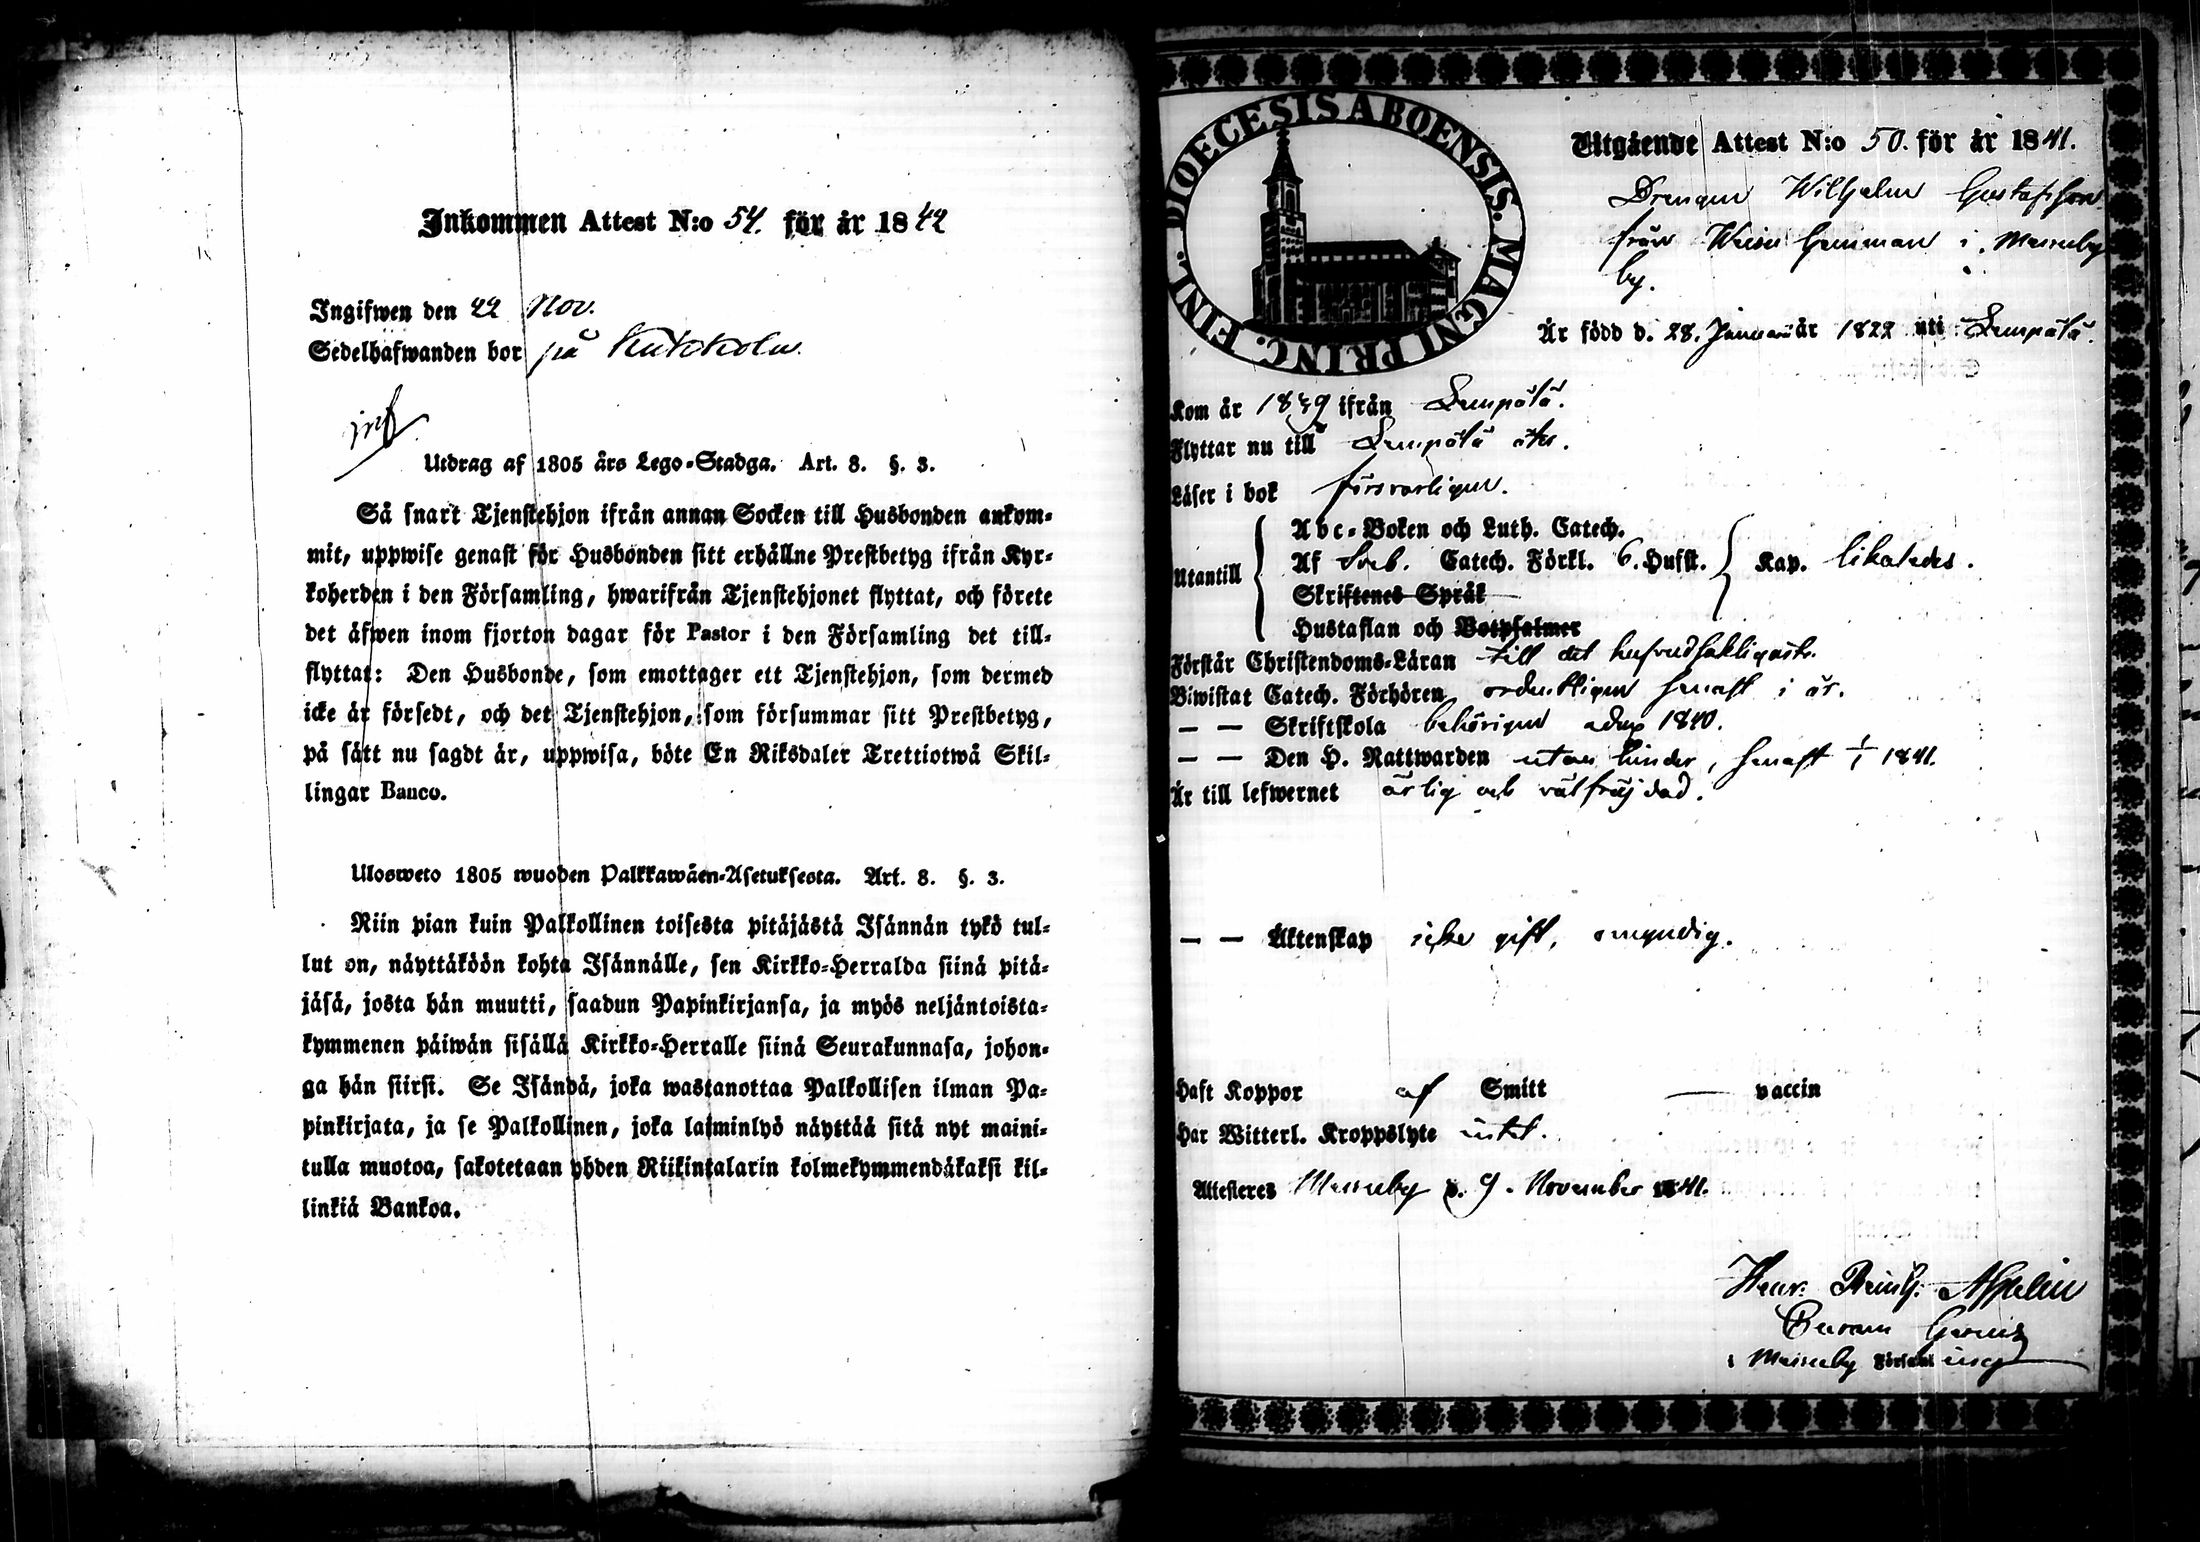 Inkommen Attest N:o 54. för år 1842
Ingifwen den 22 Nov.
Sedelhafwanden bor på
inf
Utdrag af 1805 års Lego-Stadga. Art. 8. §. 3.
Så snart Tjenstehjon ifrån annan Socken till Husbonden ankom-
mit, uppwise genast för Husbonden sitt erhållne Prestbetyg ifrån Kyr-
koherden i den Församling, hwarifrån Tjenstehjonet flyttat, och förete
det äfwen inom fjorton dagar för Pastor i den Församling det till-
flyttat: Den Husbonde, som emottager ett Tjenstehjon, som dermed
icke är försedt, och det Tjenstehjon, som försummar sitt Prestbetyg,
på sätt nu sagdt är, uppwisa, böte En Riksdaler Trettiotwå Skil-
lingar Banco.
Ulosweto 1805 wuoden Palkkawäen-Asetuksesta. Art. 8. §. 3.
Niin pian kuin Palkollinen toisesta pitäjästä Isännän tykö tul-
lut on, näyttäköön kohta Isännälle, sen Kirkko-Herralda siinä pitä-
jäsä, josta hän muutti, saadun Papinkirjansa, ja myös neljäntoista-
kymmenen päiwän sisällä Kirkko-Herralle siinä Seurakunnasa, johon-
ga hän siirsi. Se Isändä, joka wastanottaa Palkollisen ilman Pa-
pinkirjata, ja se Palkollinen, joka laiminlyö näyttää sitä nyt maini-
tulla muotoa, sakotetaan yhden Riikintalarin kolmekymmendäkaksi kil-
linkiä Bankoa.
DIOECESIS ABOENSIS. MAGNI PRINC. FINL.
Utgående Attest N:o 50. för år 1841.
Drengen Wilhelm Gustafsson
från hemman i
by.
Är född d. 28. Januari år 1822 uti Lempälä.
Kom år 1839 ifrån Lempälä.
Flyttar nu till Lempälä åter.
Läser i bok försvarligen.
Utantill
Abc-Boken och Luth. Catech.
Af Sveb. Catech. Förkl. 6. Hufst. Kap. likaledes.
Skriftenes Språk
Hustaflan och Botpsalmer
Förstår Christendoms-Läran till det hufvudsakligaste.
Biwistat Catech. Förhören ordentligen senast i år.
— — Skriftskola behörigen 1840.
— — Den H. Nattwarden utan hinder, senast 1/1 1841.
Är till lefwernet ärlig och välfräjdad.
— — Äktenskap icke gift, omyndig.
Haft Koppor af Smitt — vaccin
Har Witterl. Kroppslyte intet.
Attesteres d. 9. November 1841.
Henr. Reinh. Aspelin
i Församling